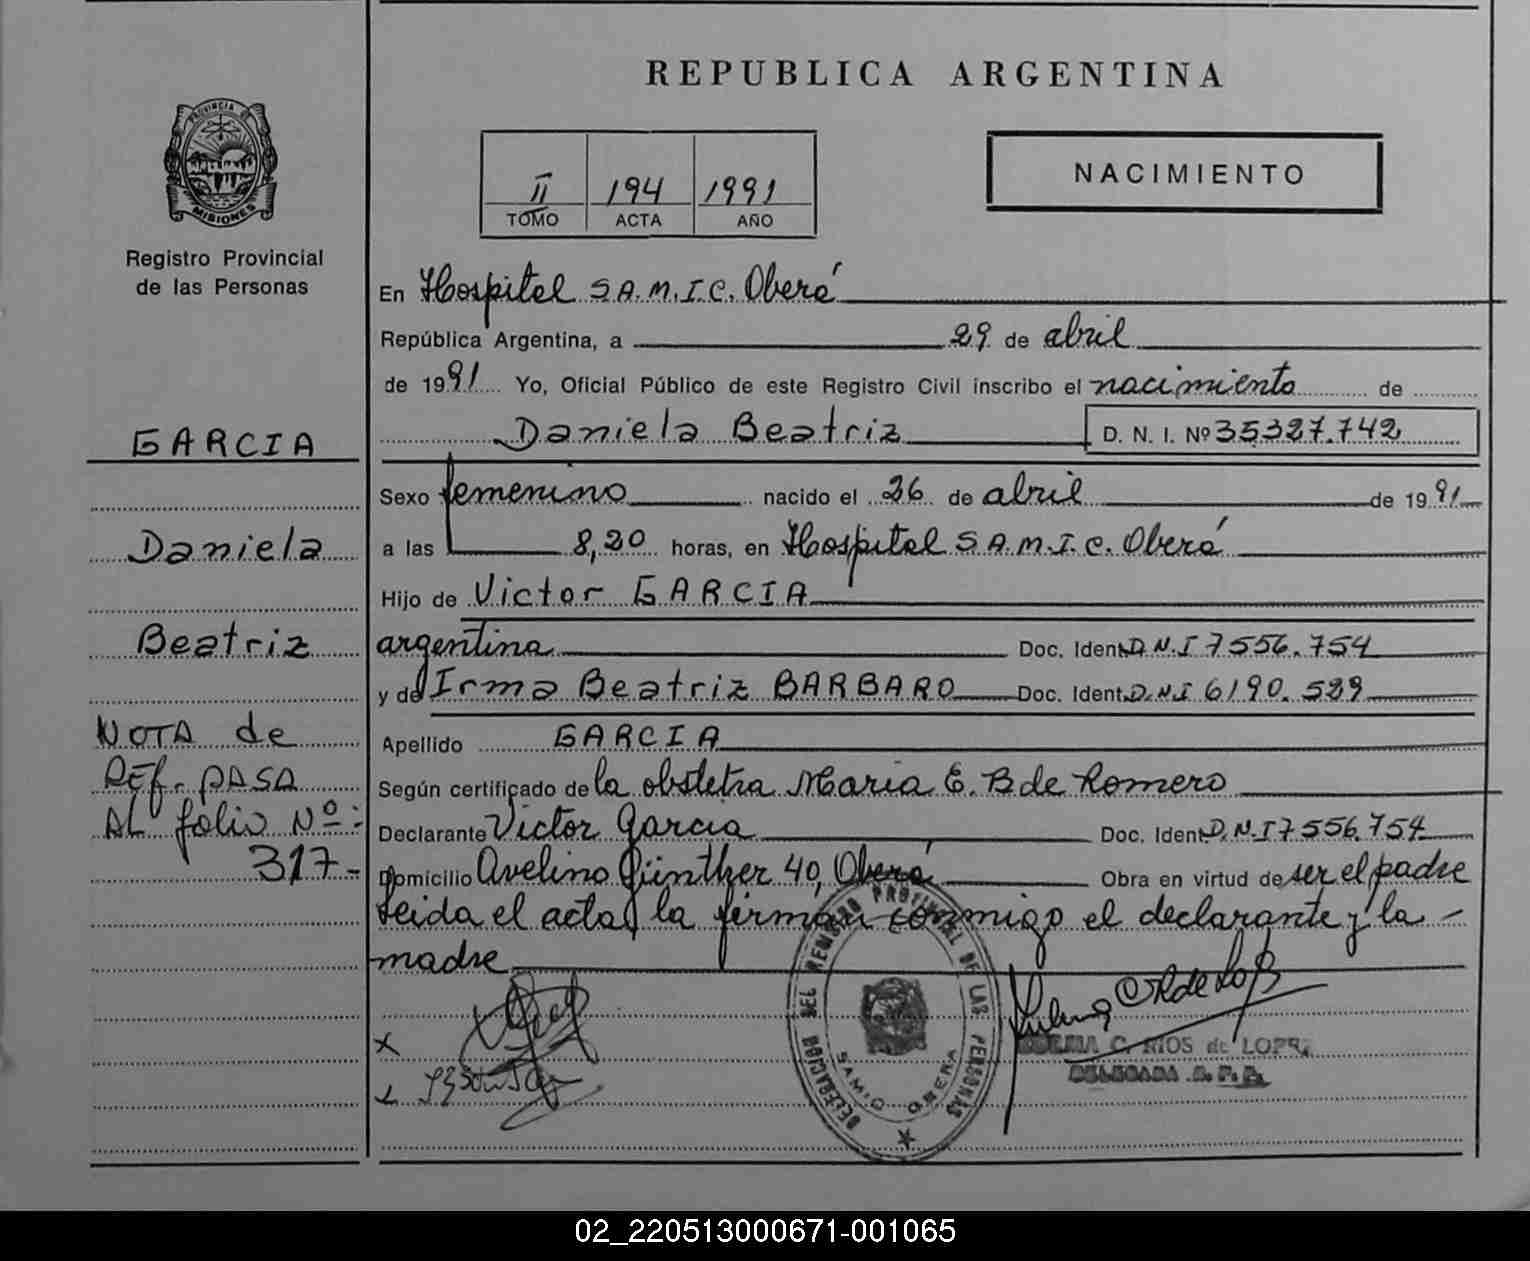 REPUBLICA ARGENTINA
PROVINCIA DE
MISIONES
Registro Provincial
de las Personas
II 194 1991
TOMO ACTA AÑO
NACIMIENTO
En Hospital S.A.M.I.C. Oberá
República Argentina, a 29 de abril
de 1991 Yo, Oficial Público de este Registro Civil inscribo el nacimiento de
Daniela Beatriz D. N. I. Nº 35327.742
Sexo femenino nacido el 26 de abril de 1991
a las 8,20 horas, en Hospital S.A.M.I.C. Oberá
Hijo de Victor GARCIA
argentina Doc. Ident. D.N.I 7556.754
y de Irma Beatriz BARBARO Doc. Ident. D.N.I 6190.589
Apellido GARCIA
Según certificado de la obstetra Maria E. B de Romero
Declarante Victor Garcia Doc. Ident. D.N.I 7556.754
Domicilio Avelino Günther 40, Oberá Obra en virtud de ser el padre
Leida el acta la firman conmigo el declarante y la -
madre
GARCIA
Daniela
Beatriz
NOTA de
REf. PASA
AL folio Nº:
317-
DELEGACION DEL REGISTRO PROVINCIAL DE LAS PERSONAS
SAMIC OBERA
C. RIOS de LOPEZ
DELEGADA R. P. P.
02_220513000671-001065